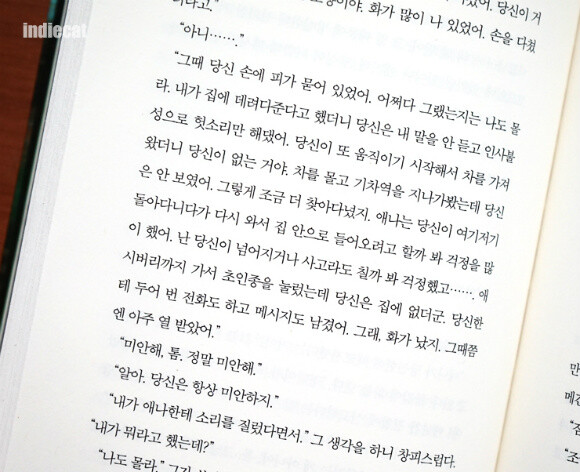 indiecat
당신이 거
화가 많이 나 있었어. 손을 다쳤
“아니…….”
“그때 당신 손에 피가 묻어 있었어. 어쩌다 그랬는지는 나도 몰
라. 내가 집에 데려다준다고 했더니 당신은 내 말을 안 듣고 인사불
성으로 헛소리만 해댔어. 당신이 또 움직이기 시작해서 차를 가져
왔더니 당신이 없는 거야. 차를 몰고 기차역을 지나가봤는데 당신
은 안 보였어. 그렇게 조금 더 찾아다녔지. 애나는 당신이 여기저기
돌아다니다가 다시 와서 집 안으로 들어오려고 할까 봐 걱정을 많
이 했어. 난 당신이 넘어지거나 사고라도 칠까 봐 걱정했고……. 애
시버리까지 가서 초인종을 눌렀는데 당신은 집에 없더군. 당신한
테 두어 번 전화도 하고 메시지도 남겼어. 그래, 화가 났지. 그때쯤
엔 아주 열 받았어.”
“미안해, 톰. 정말 미안해.”
“알아. 당신은 항상 미안하지.”
“내가 애나한테 소리를 질렀다면서.” 그 생각을 하니 창피스럽다.
“내가 뭐라고 했는데?”
“나도 몰라.”
만
메긴